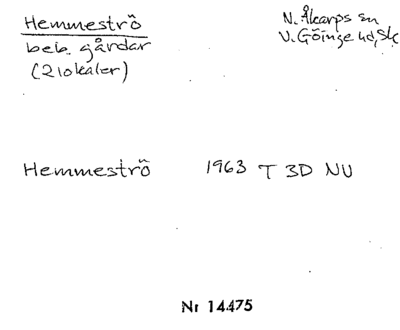 Hemmeströ
beb. gårdar
(2 lokaler)
N. Åkarps sn
V. Göinge hd, Sk
Hemmeströ 1963 T 3D NU
Nr 14475